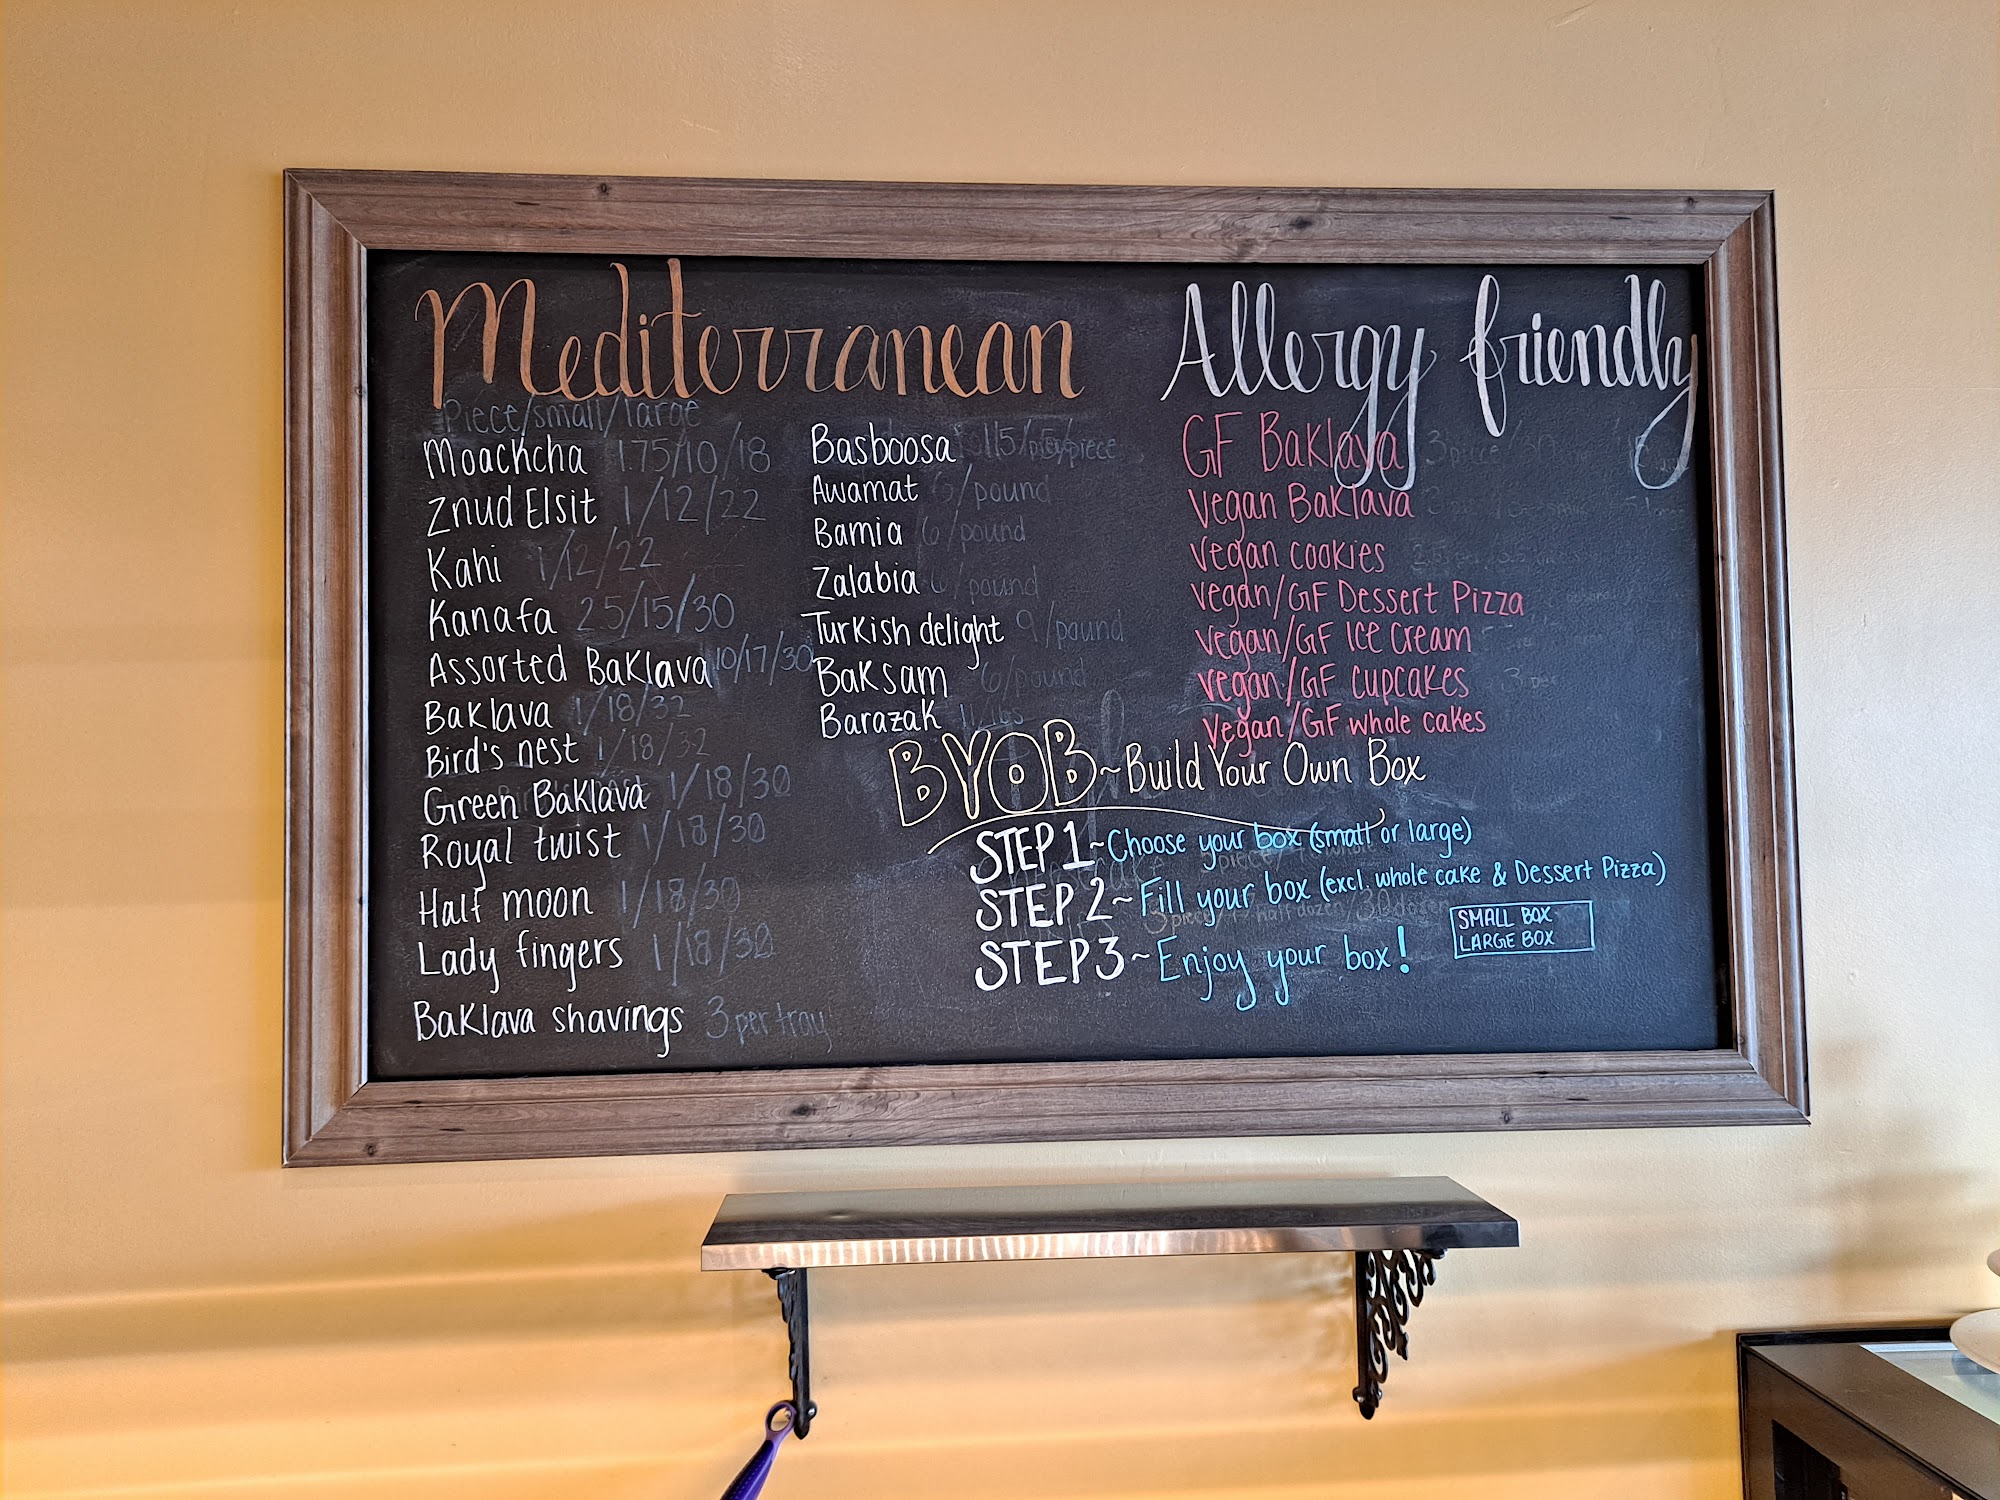 Mediterranean
Piece/small/large
Moachcha 1.75/10/18
Znud Elsit 1/12/22
Kahi 1/12/22
Kanafa 2.5/15/30
Assorted Baklava 10/17/30
Baklava 1/18/32
Bird's nest 1/18/32
Green Baklava 1/18/30
Royal twist 1/18/30
Half moon 1/18/30
Lady fingers 1/18/30
Baklava shavings 3 per tray
Basboosa
Awamat 6/pound
Bamia 6/pound
Zalabia 6/pound
Turkish delight 9/pound
Baksam 6/pound
Barazak
Allergy friendly
GF Baklava
Vegan Baklava
Vegan cookies
Vegan/GF Dessert Pizza
Vegan/GF Ice Cream
Vegan/GF cupcakes
Vegan/GF whole cakes
BYOB~Build Your Own Box
STEP 1~Choose your box (small or large)
STEP 2~Fill your box (excl. whole cake & Dessert Pizza)
STEP 3~Enjoy your box!
SMALL BOX
LARGE BOX